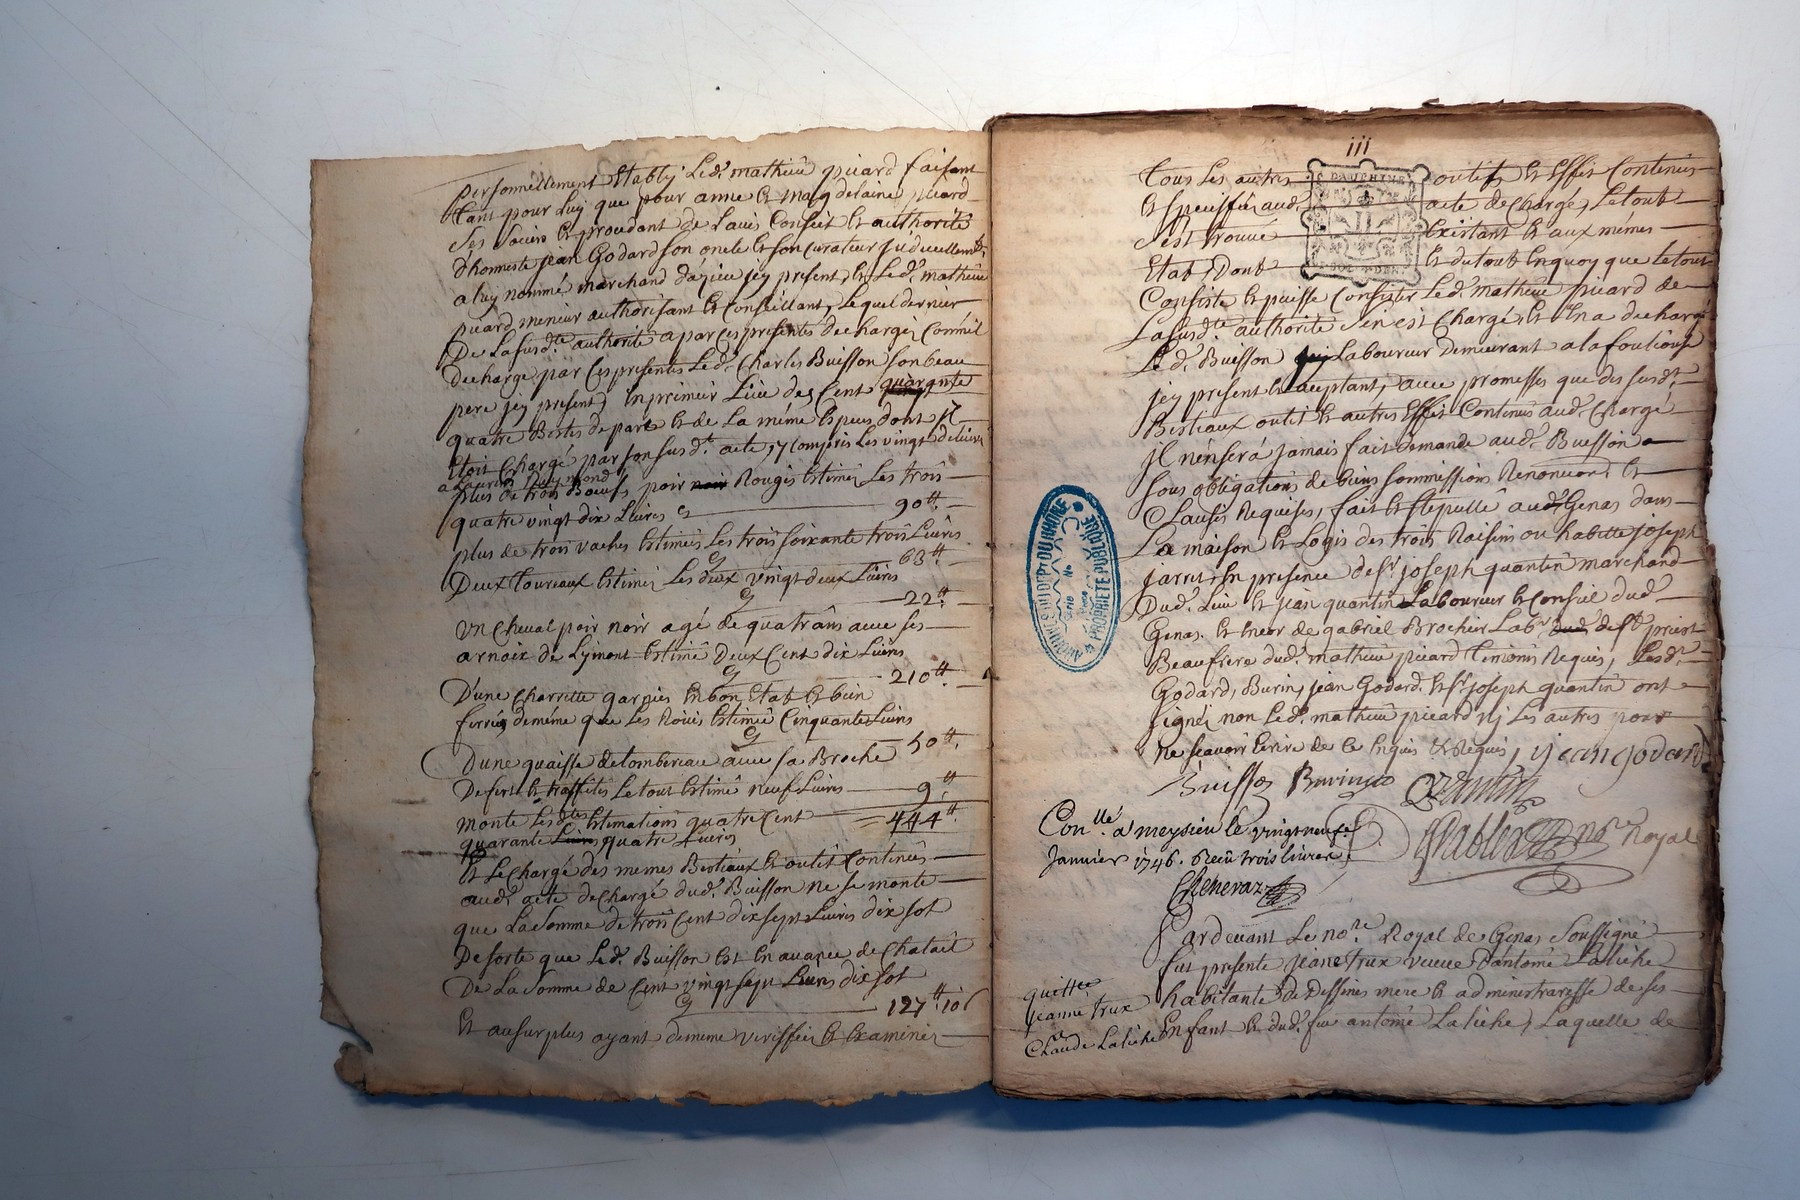 personnellement Etably Led.t mathieu picard faisant
tant pour luy que pour anne et magdelaine picard
ses soeurs Et procedant de l'avis Conseil Et authorité
d'honneste jean Godard son oncle Et son curateur
a luy nommé marchand jcy present, Et Led.t mathieu
picard mineur authorisant Et Conseillant, Lequel dernier
De La susd.te authorité a par ces presentes dechargé Comme il
decharge par Ces presentes Led.t Charles Buisson son beau
pere jcy present, En premier Lieu des Cent quarante
quatre Bestes de et de La même Espece dont jl
Etoit Chargé par son susd.t acte, y Compris Les vingt
plus de trois Boeufs poir noir Rougis Estimés Les trois
quatre vingt dix Livres cy 90tt.
plus de trois vaches Estimées Les trois soixante trois Livres
cy 63tt.
Deux toureaux Estimés Les deux vingt deux Livres
cy 22tt.
un Cheval poir noir agé de quatrans avec ses
arnoix de Lymont Estimé Deux Cent dix Livres
cy 210tt.
D'une Charrette garnies En bon Etat Et bien
ferrée de même que Les Roües Estimée Cinquante Livres
cy 50tt.
D'une quaisse de tombereau avec sa Broche
De fert Et Le tout Estimé neuf Livres 9tt.
monte Lesd.tes Estimations quatre Cent = 444tt.
quarante Livres quatre Livres
Et Le Chargé des memes Bestiaux Et outit Contenües
aud.t acte de Chargé dud.t Buisson ne se monte
que La somme de trois Cent dix sept Livres dix sot
De sorte que Led.t Buisson Est En avance de Chatail
De La somme de Cent vingt sept Livres dix sot
cy 127tt. 10s
Et au surplus ayant de meme veriffiés Et Examinés
iii
tous Les autres outits Et Effets Contenus
Et speciffié aud.t acte de Chargé, Le tout
s'est trouvé Existant Et aux mêmes
Etat, Dont Et du tout En quoy que Le tout
Consiste Et puisse Consister Led.t Mathieu picard de
La susd.te authorité s'en est Chargé, Et En a dechargé
Led.t Buisson Laboureur Demeurant a la fouliouse
jcy present Et aceptant, avec promesses que des susd.ts
Bestiaux outit Et autres Effets Contenus aud.t Chargé
jl n'en sera jamais fait demande aud.t Buisson
sous obligations de biens sommissions Renonciaons Et
Clauses Requises, fait Et stipullé aud.t Genas dans
La maison Et Logis des trois Raisins ou habitte joseph
jarret En presence de s.r joseph quantin marchand
Dud.t Lieu Et jean quantin Laboureur Et Consul dud.t
Genas. Et encor de gabriel Brochier Lab.r dud.t de s.t priest
Beaufrere dud.t mathieu picard temoins Requis, Lesd.ts
Godard, Burin, jean Godard. Et s.r joseph quantin ont
signés non Led.t mathieu picard nj Les autres pour
ne scavoir Ecrire de ce Enquis Et Requis, jean godard
Buisson Burin Quantin
not.re Royal
Con.llé a meysieu le vingt neuf
Janvier 1746. Reçu trois livres
Cheneraz
Pardevant Le no.re Royal de Genas soussigné
fut presente jeane trux veuve d'antome Laliche
quittce
jeanne trux
Claude Laliche
habitante de Dessines mere Et administraresse de ses
Enfant Et dud.t feu antome Laliche, Laquelle de
DAUPHINE
ARCHIVES DU DEPT DU RHONE
PROPRIETE PUBLIQUE